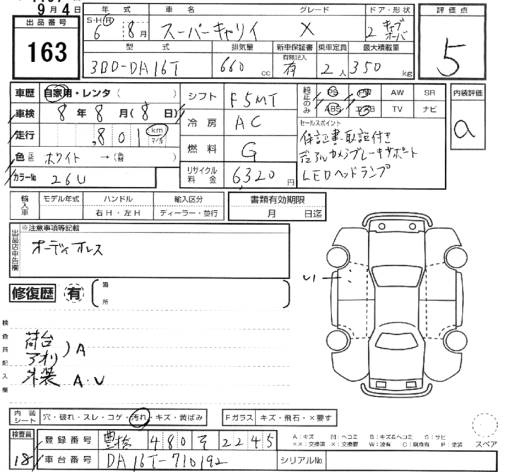 9月4日
出品番号 163
年式 車名 グレード ドア・形状 評価点
S・H・R 6年 8月 スーパーキャリイ X 2 キャブオーバ 5
型式 排気量 新車保証書 有無記入 乗車定員 最大積載量
3BD-DA16T 660cc 有 2人 350kg
車歴 自家用・レンタ
車検 8年8月(8日)
走行 801 km マイル
色 ホワイト →(替 )
カラーNo 26U
シフト F5MT
冷房 AC
燃料 G
リサイクル料金 6,320円
純正のみ PS PW AW SR
ABS エアB TV ナビ
内装評価 a
セールスポイント
保証書・取説付き
デュアルカメラブレーキサポート
LEDヘッドランプ
輸入車 モデル年式 ハンドル 輸入区分
年 右H・左H ディーラー・並行
書類有効期限
月 日迄
出品店申告欄 ※注意事項等記載
オーディオレス
修復歴 有 箇所
検査員記入欄
荷台
アオリ ) A
A・U
内装シート 穴・破れ・スレ・コゲ・汚れ・キズ・黄ばみ
Fガラス キズ・飛石・×要す
スペア
検査員 18
登録番号 豊橋 480 う 2245
車台番号 DA16T-710192
シリアルNo
A：キズ U：ヘコミ B：キズ&ヘコミ S：サビ